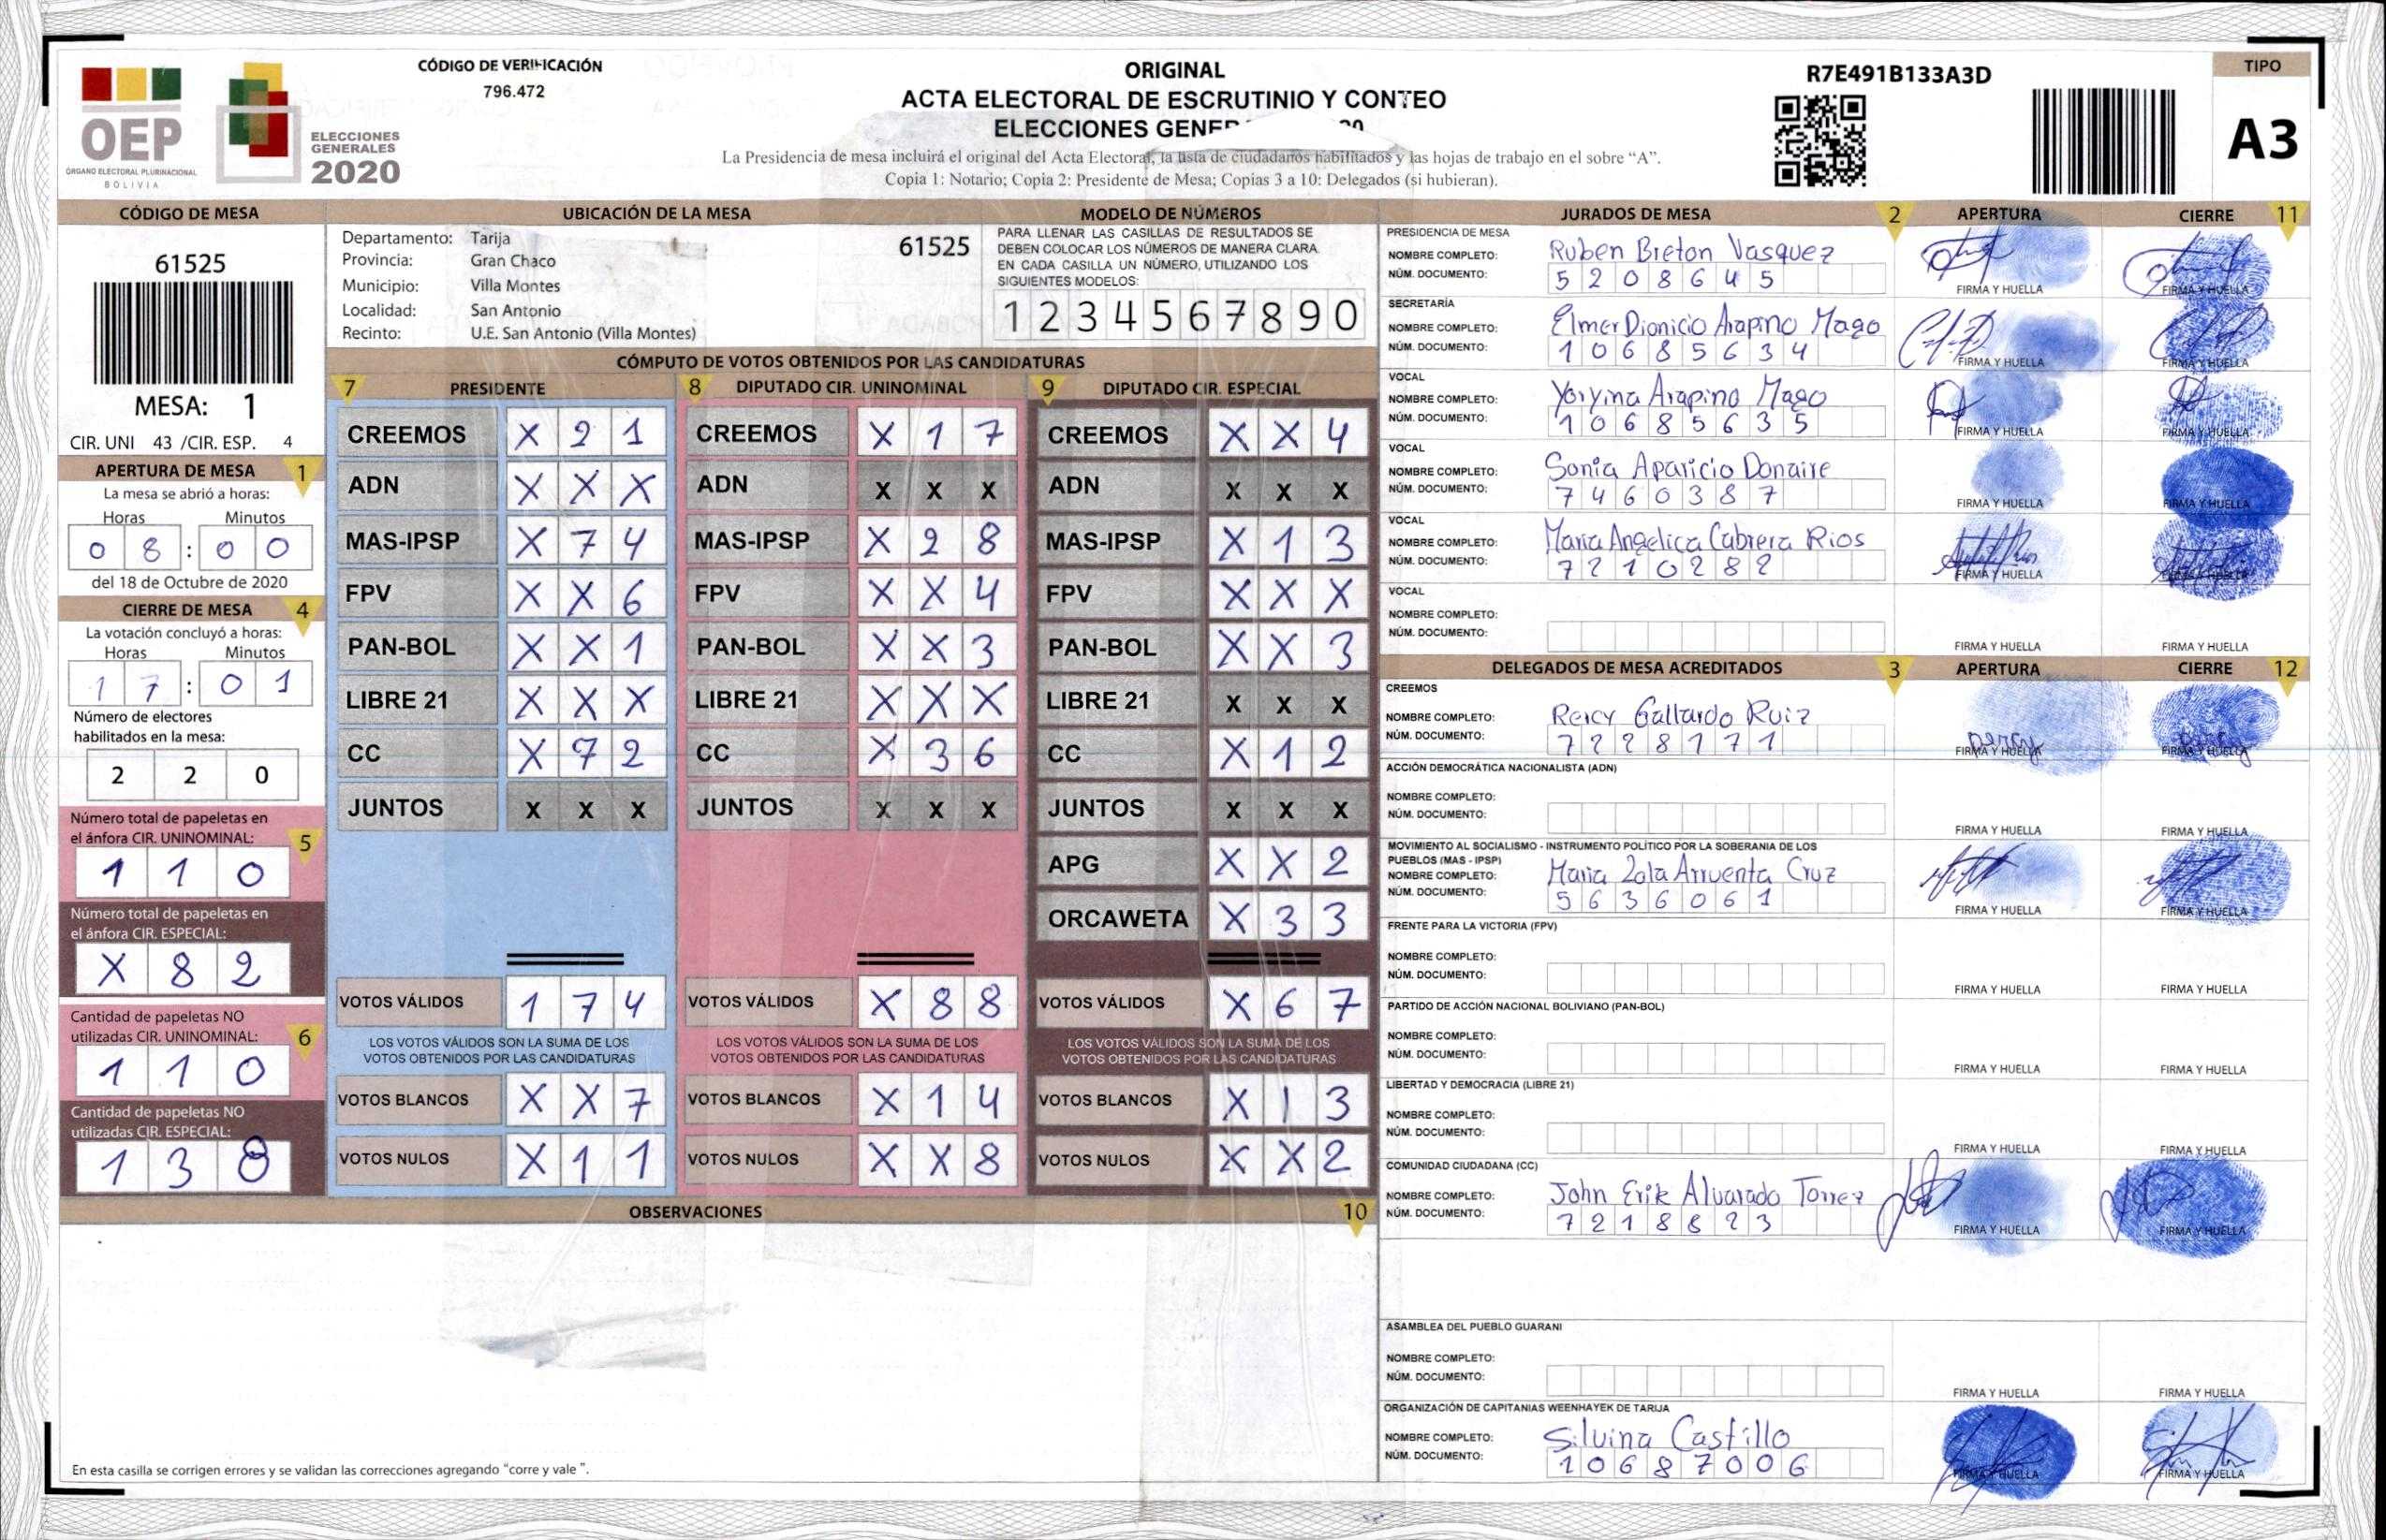 OEP
ÓRGANO ELECTORAL PLURINACIONAL
BOLIVIA
ELECCIONES
GENERALES
2020
CÓDIGO DE VERIFICACIÓN
796.472
ORIGINAL
ACTA ELECTORAL DE ESCRUTINIO Y CONTEO
ELECCIONES
La Presidencia de mesa incluirá el original del Acta Electoral, la lista de ciudadanos habilitados y las hojas de trabajo en el sobre “A”.
Copia 1: Notario; Copia 2: Presidente de Mesa; Copias 3 a 10: Delegados (si hubieran).
R7E491B133A3D
TIPO
A3
CÓDIGO DE MESA
61525
MESA: 1
CIR. UNI 43 /CIR. ESP. 4
APERTURA DE MESA 1
La mesa se abrió a horas:
Horas Minutos
0 8 : 0 0
del 18 de Octubre de 2020
CIERRE DE MESA 4
La votación concluyó a horas:
Horas Minutos
1 7 : 0 1
Número de electores
habilitados en la mesa:
2 2 0
Número total de papeletas en
el ánfora CIR. UNINOMINAL: 5
1 1 0
Número total de papeletas en
el ánfora CIR. ESPECIAL:
X 8 2
Cantidad de papeletas NO
utilizadas CIR. UNINOMINAL: 6
1 1 0
Cantidad de papeletas NO
utilizadas CIR. ESPECIAL:
1 3 8
UBICACIÓN DE LA MESA
Departamento: Tarija
Provincia: Gran Chaco
Municipio: Villa Montes
Localidad: San Antonio
Recinto: U.E. San Antonio (Villa Montes)
61525
MODELO DE NÚMEROS
PARA LLENAR LAS CASILLAS DE RESULTADOS SE
DEBEN COLOCAR LOS NÚMEROS DE MANERA CLARA
EN CADA CASILLA UN NÚMERO, UTILIZANDO LOS
SIGUIENTES MODELOS:
1 2 3 4 5 6 7 8 9 0
CÓMPUTO DE VOTOS OBTENIDOS POR LAS CANDIDATURAS
7 PRESIDENTE
CREEMOS X 2 1
ADN X X X
MAS-IPSP X 7 4
FPV X X 6
PAN-BOL X X 1
LIBRE 21 X X X
CC X 7 2
JUNTOS X X X
VOTOS VÁLIDOS 1 7 4
LOS VOTOS VÁLIDOS SON LA SUMA DE LOS
VOTOS OBTENIDOS POR LAS CANDIDATURAS
VOTOS BLANCOS X X 7
VOTOS NULOS X 1 1
8 DIPUTADO CIR. UNINOMINAL
CREEMOS X 1 7
ADN X X X
MAS-IPSP X 2 8
FPV X X 4
PAN-BOL X X 3
LIBRE 21 X X X
CC X 3 6
JUNTOS X X X
VOTOS VÁLIDOS X 8 8
LOS VOTOS VÁLIDOS SON LA SUMA DE LOS
VOTOS OBTENIDOS POR LAS CANDIDATURAS
VOTOS BLANCOS X 1 4
VOTOS NULOS X X 8
9 DIPUTADO CIR. ESPECIAL
CREEMOS X X 4
ADN X X X
MAS-IPSP X 1 3
FPV X X X
PAN-BOL X X 3
LIBRE 21 X X X
CC X 1 2
JUNTOS X X X
APG X X 2
ORCAWETA X 3 3
VOTOS VÁLIDOS X 6 7
LOS VOTOS VÁLIDOS SON LA SUMA DE LOS
VOTOS OBTENIDOS POR LAS CANDIDATURAS
VOTOS BLANCOS X 1 3
VOTOS NULOS X X 2
OBSERVACIONES 10
En esta casilla se corrigen errores y se validan las correcciones agregando “corre y vale ”.
JURADOS DE MESA 2 APERTURA CIERRE 11
PRESIDENCIA DE MESA
NOMBRE COMPLETO: Ruben Breton Vasquez
NÚM. DOCUMENTO: 5 2 0 8 6 4 5
FIRMA Y HUELLA FIRMA Y HUELLA
SECRETARÍA
NOMBRE COMPLETO: Elmer Dionicio Arapino Mago
NÚM. DOCUMENTO: 1 0 6 8 5 6 3 4
FIRMA Y HUELLA FIRMA Y HUELLA
VOCAL
NOMBRE COMPLETO: Yoryina Arapino Mago
NÚM. DOCUMENTO: 1 0 6 8 5 6 3 5
FIRMA Y HUELLA FIRMA Y HUELLA
VOCAL
NOMBRE COMPLETO: Sonia Aparicio Donaire
NÚM. DOCUMENTO: 7 4 6 0 3 8 7
FIRMA Y HUELLA FIRMA Y HUELLA
VOCAL
NOMBRE COMPLETO: Maria Angelica Cabrera Rios
NÚM. DOCUMENTO: 7 2 1 0 2 8 2
FIRMA Y HUELLA FIRMA Y HUELLA
VOCAL
NOMBRE COMPLETO:
NÚM. DOCUMENTO:
FIRMA Y HUELLA FIRMA Y HUELLA
DELEGADOS DE MESA ACREDITADOS 3 APERTURA CIERRE 12
CREEMOS
NOMBRE COMPLETO: Gallardo Ruiz
NÚM. DOCUMENTO: 7 2 2 8 1 7 1
FIRMA Y HUELLA FIRMA Y HUELLA
ACCIÓN DEMOCRÁTICA NACIONALISTA (ADN)
NOMBRE COMPLETO:
NÚM. DOCUMENTO:
FIRMA Y HUELLA FIRMA Y HUELLA
MOVIMIENTO AL SOCIALISMO - INSTRUMENTO POLÍTICO POR LA SOBERANIA DE LOS
PUEBLOS (MAS - IPSP)
NOMBRE COMPLETO: Maria Cruz
NÚM. DOCUMENTO: 5 6 3 6 0 6 1
FIRMA Y HUELLA FIRMA Y HUELLA
FRENTE PARA LA VICTORIA (FPV)
NOMBRE COMPLETO:
NÚM. DOCUMENTO:
FIRMA Y HUELLA FIRMA Y HUELLA
PARTIDO DE ACCIÓN NACIONAL BOLIVIANO (PAN-BOL)
NOMBRE COMPLETO:
NÚM. DOCUMENTO:
FIRMA Y HUELLA FIRMA Y HUELLA
LIBERTAD Y DEMOCRACIA (LIBRE 21)
NOMBRE COMPLETO:
NÚM. DOCUMENTO:
FIRMA Y HUELLA FIRMA Y HUELLA
COMUNIDAD CIUDADANA (CC)
NOMBRE COMPLETO: John Erik Alvarado Torrez
NÚM. DOCUMENTO: 7 2 1 8 8 2 3
FIRMA Y HUELLA FIRMA Y HUELLA
ASAMBLEA DEL PUEBLO GUARANI
NOMBRE COMPLETO:
NÚM. DOCUMENTO:
FIRMA Y HUELLA FIRMA Y HUELLA
ORGANIZACIÓN DE CAPITANIAS WEENHAYEK DE TARIJA
NOMBRE COMPLETO: Silvina Castillo
NÚM. DOCUMENTO: 1 0 6 8 7 0 0 6
FIRMA Y HUELLA FIRMA Y HUELLA